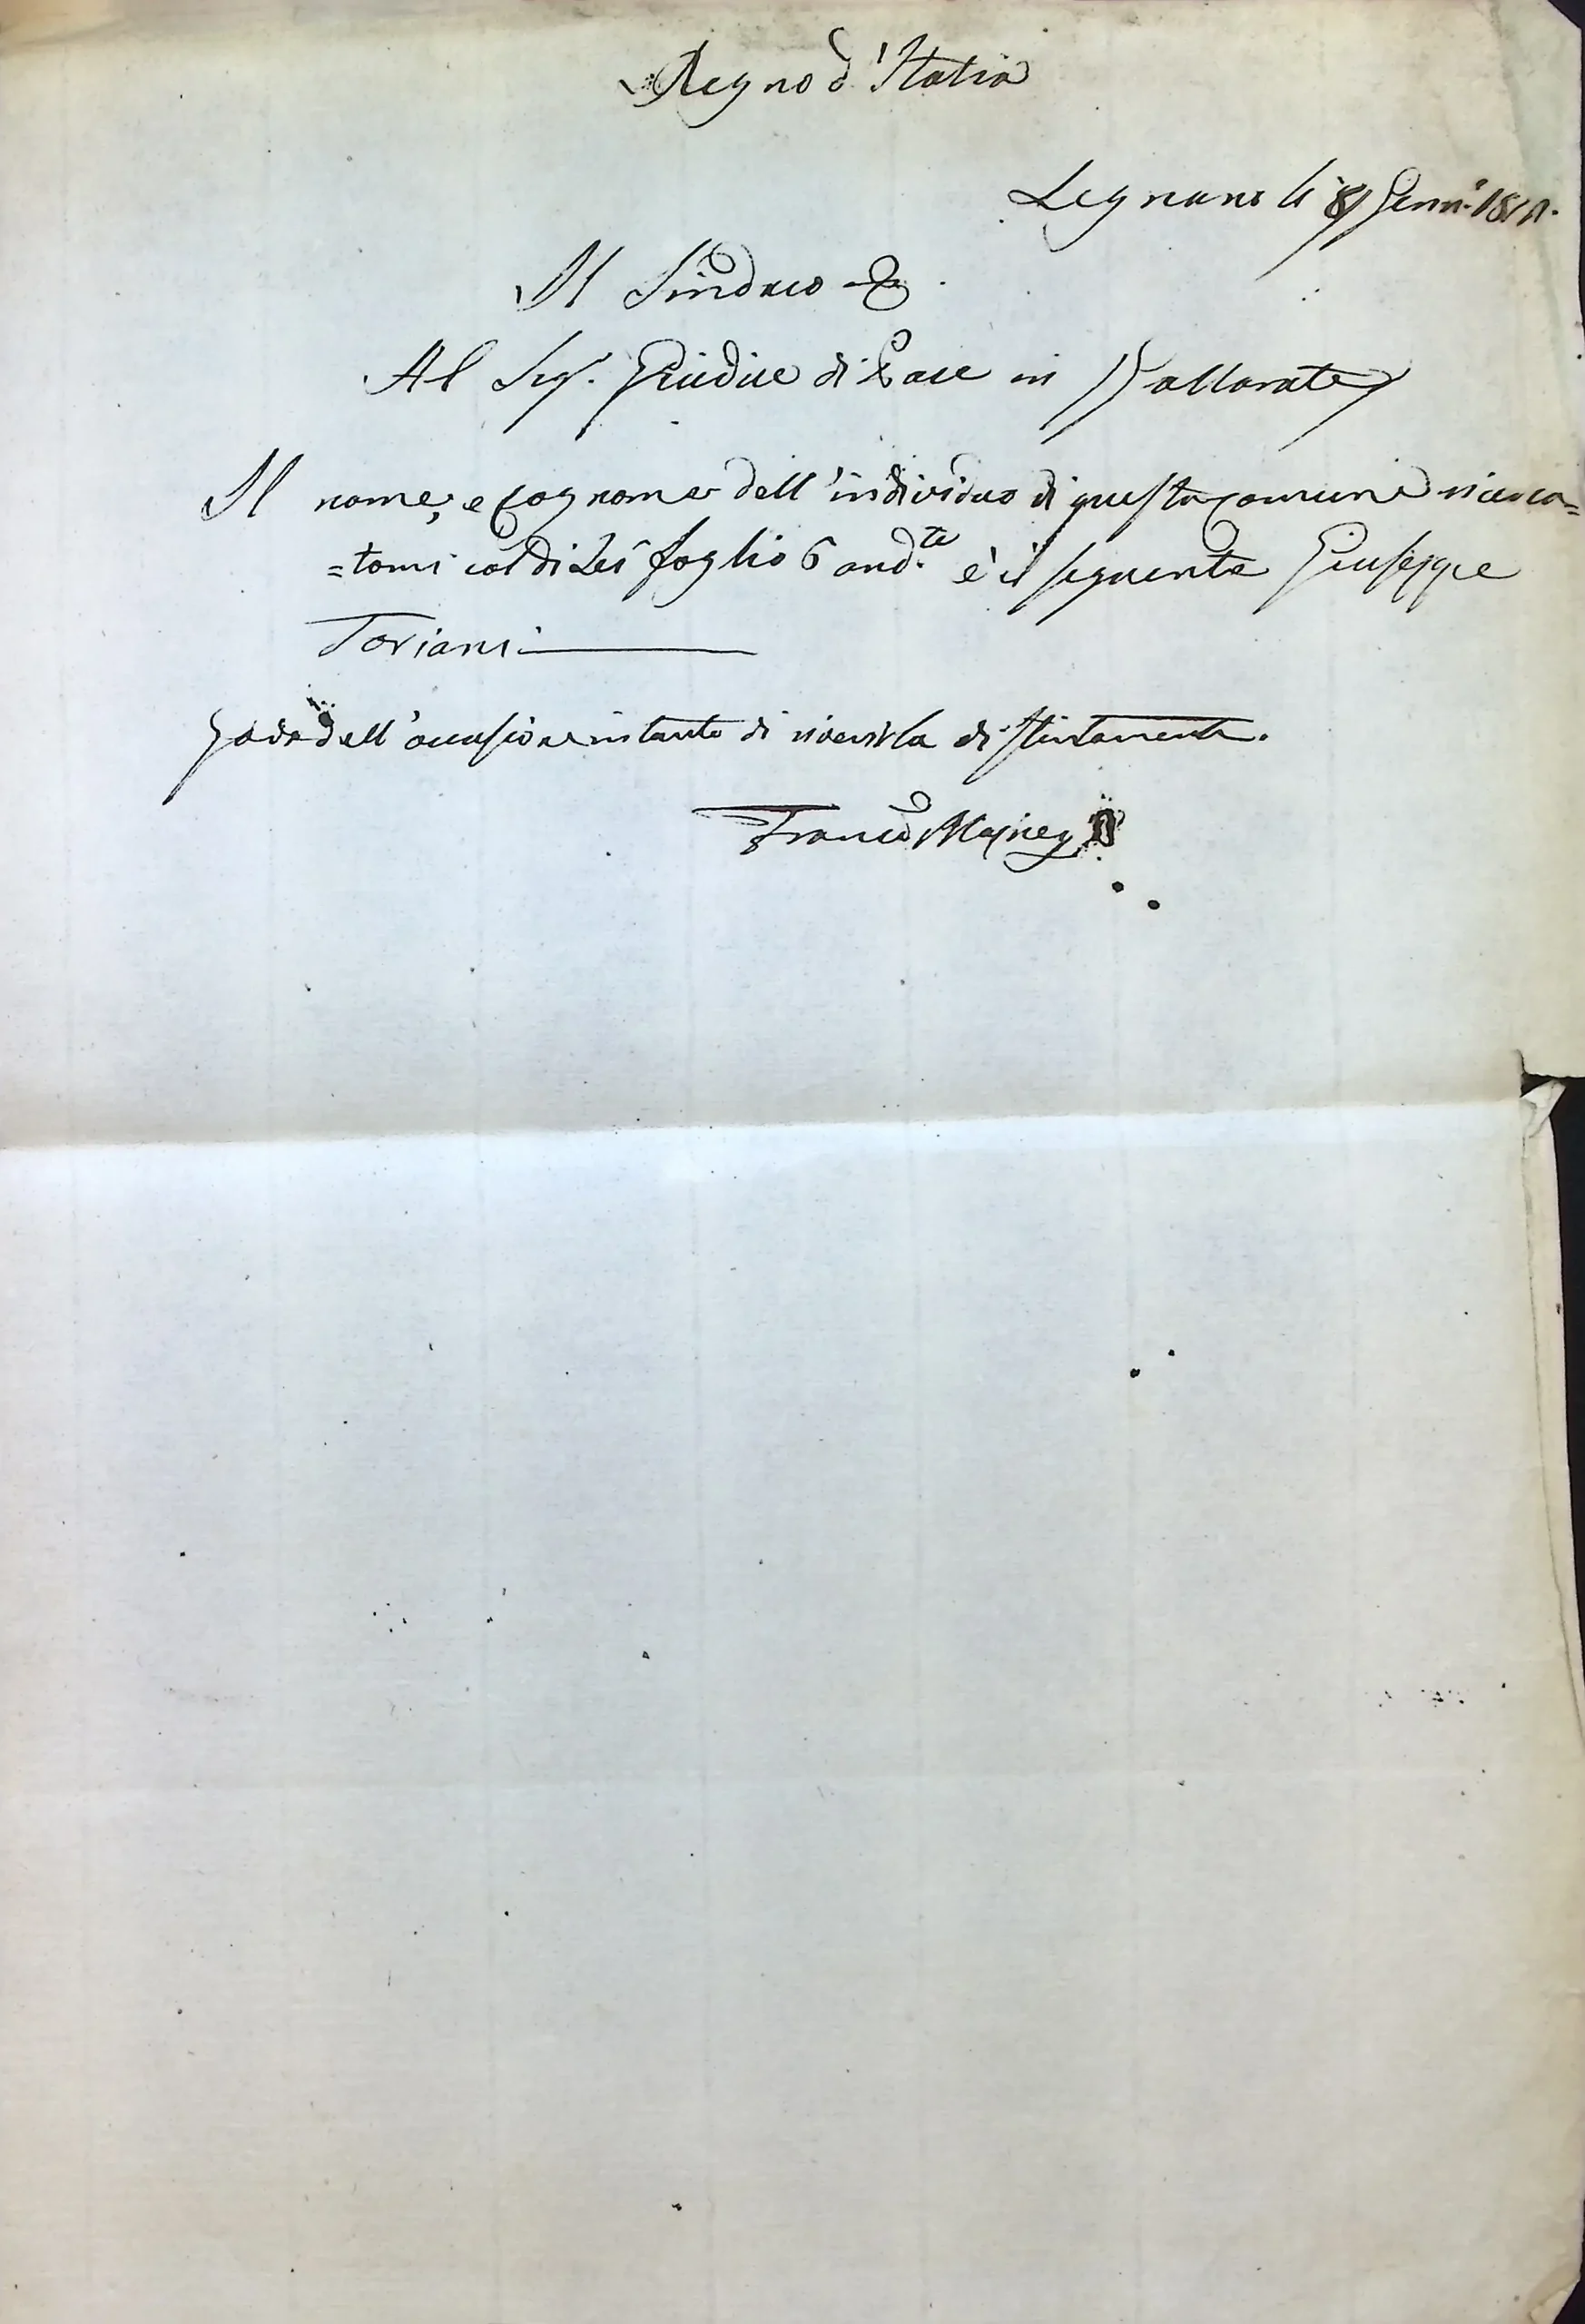 Regno d'Italia
Legnano li 8 Genn.o
Il Sindaco
Al Sig.r Giudice di Pace in Gallarate
Il nome, e Cognome dell'individuo di questa comune ricerca=
=tomi col di Lei foglio 6 and.te è il seguente Giuseppe
Toriani
Godo dell'occasione intanto di riverirla distintamente.